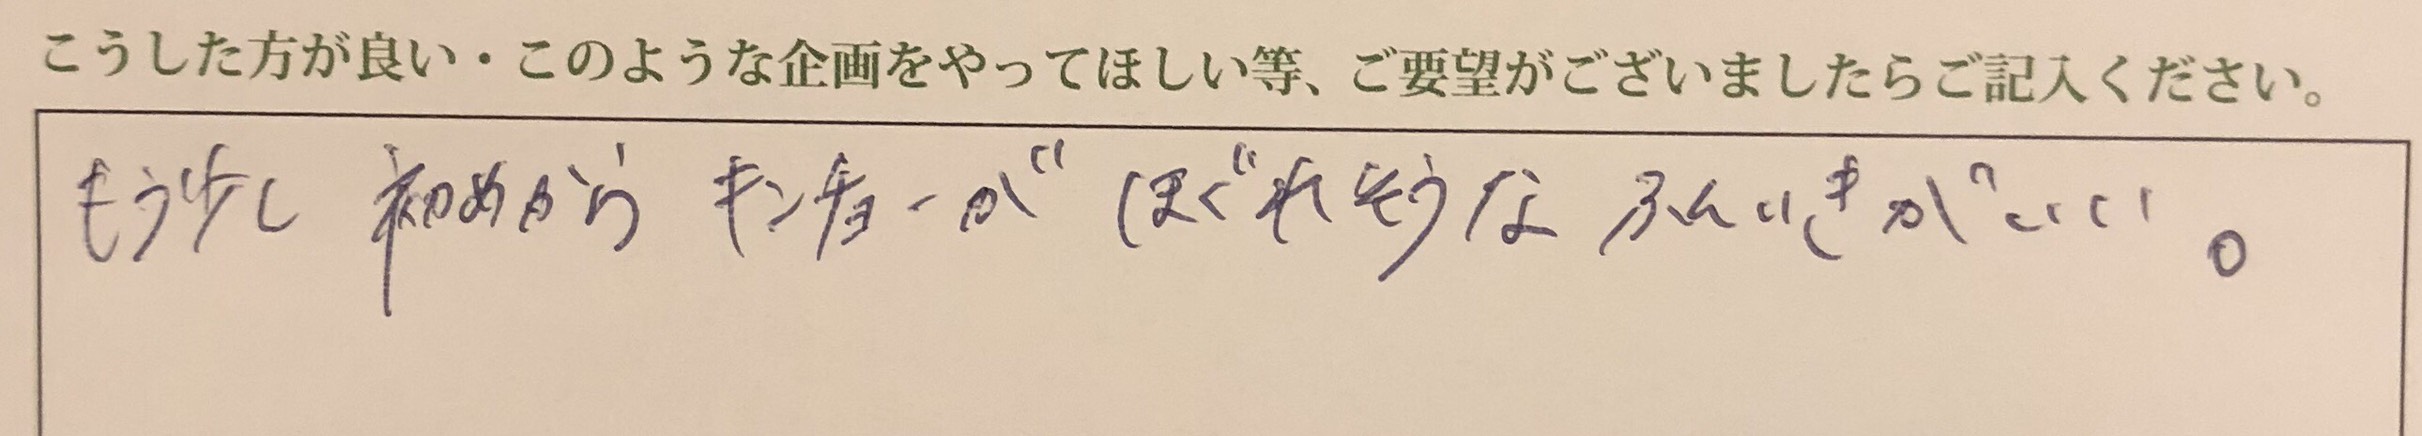 こうした方が良い・このような企画をやってほしい等、ご要望がございましたらご記入ください。
もう少し 初めから キンチョーが ほぐれそうな ふんいきがいい。